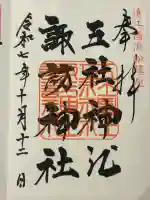 奉拝
五社神社
諏訪神社
令和七年十月十二日